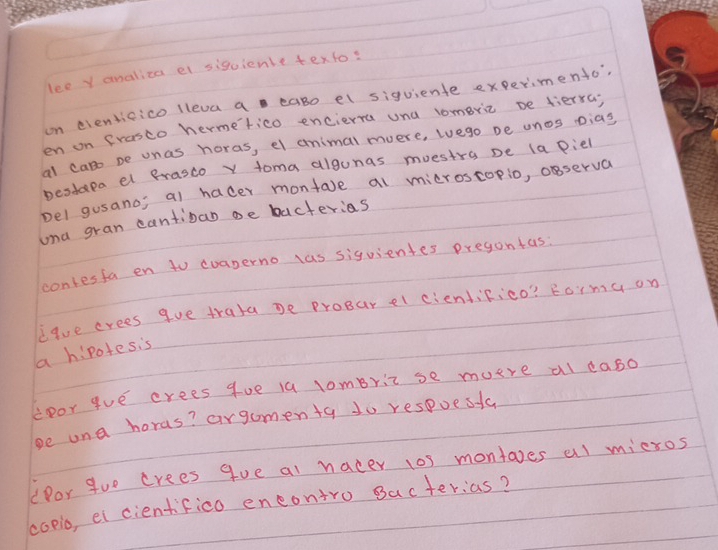 lee y analiza el siguiente texto:
un cienticico lleva a caBo el siguiente experimento:
en un frasco hermetico encierra una lombriz De tierra;
al cabo De unas horas, el animal muere, luego De unos Dias
Destapa el frasco y toma algunas muestra De la piel
Del gusano; al hacer montaje al microscopio, oBserva
una gran cantiDaD De bacterias
contesta en tu cuaDerno las siguientes preguntas:
¿que crees que trata De proBar el cientifico? Forma un
a hipotesis
¿por qué crees que la lombriz se muere al caBo
De una horas? argumenta tu respuesta
¿Por que crees que al hacer los montajes al micros
copio, el cientifico encontro Bacterias?